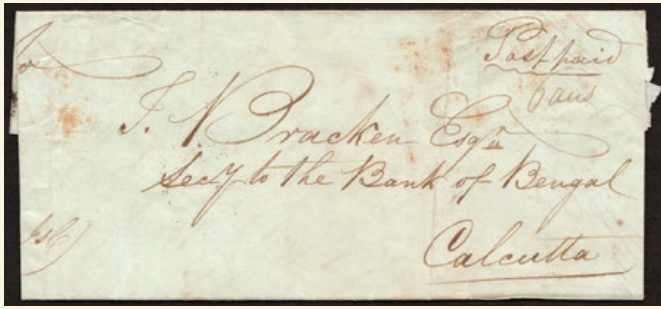 Post paid
To
J. Bracken Esqr
Secy to the Bank of Bengal
Calcutta